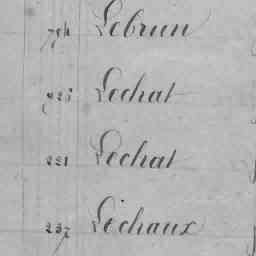 Lebrun
Lechat
221 Lechat
237 Léchaux